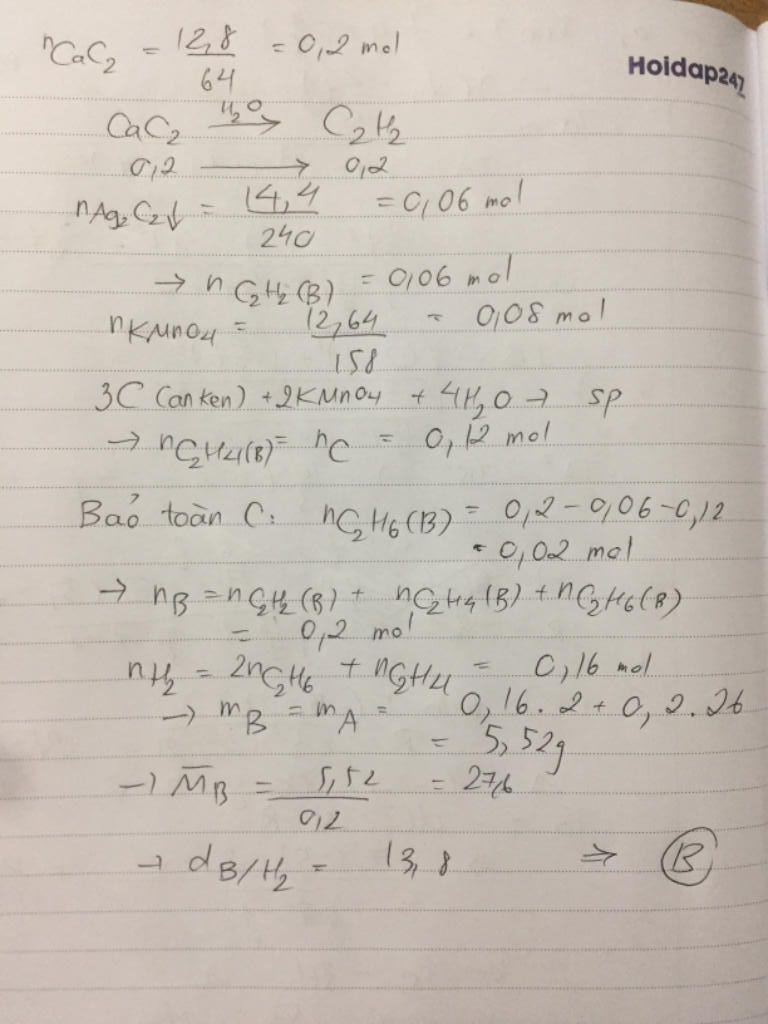 nCaC₂ = 12,8/64 = 0,2 mol
Hoidap247
CaC₂ —H₂O→ C₂H₂
0,2 ⟶ 0,2
nAg₂C₂↓ = 14,4/240 = 0,06 mol
→ nC₂H₂(B) = 0,06 mol
nKMnO₄ = 12,64/158 = 0,08 mol
3C (anken) + 2KMnO₄ + 4H₂O → sp
→ nC₂H₄(B) = nC = 0,12 mol
Bảo toàn C: nC₂H₆(B) = 0,2 - 0,06 - 0,12
= 0,02 mol
→ nB = nC₂H₂(B) + nC₂H₄(B) + nC₂H₆(B)
= 0,2 mol
nH₂ = 2nC₂H₆ + nC₂H₄ = 0,16 mol
→ mB = mA = 0,16.2 + 0,2.26
= 5,52g
→ M̅B = 5,52/0,2 = 27,6
→ dB/H₂ = 13,8 ⇒ B